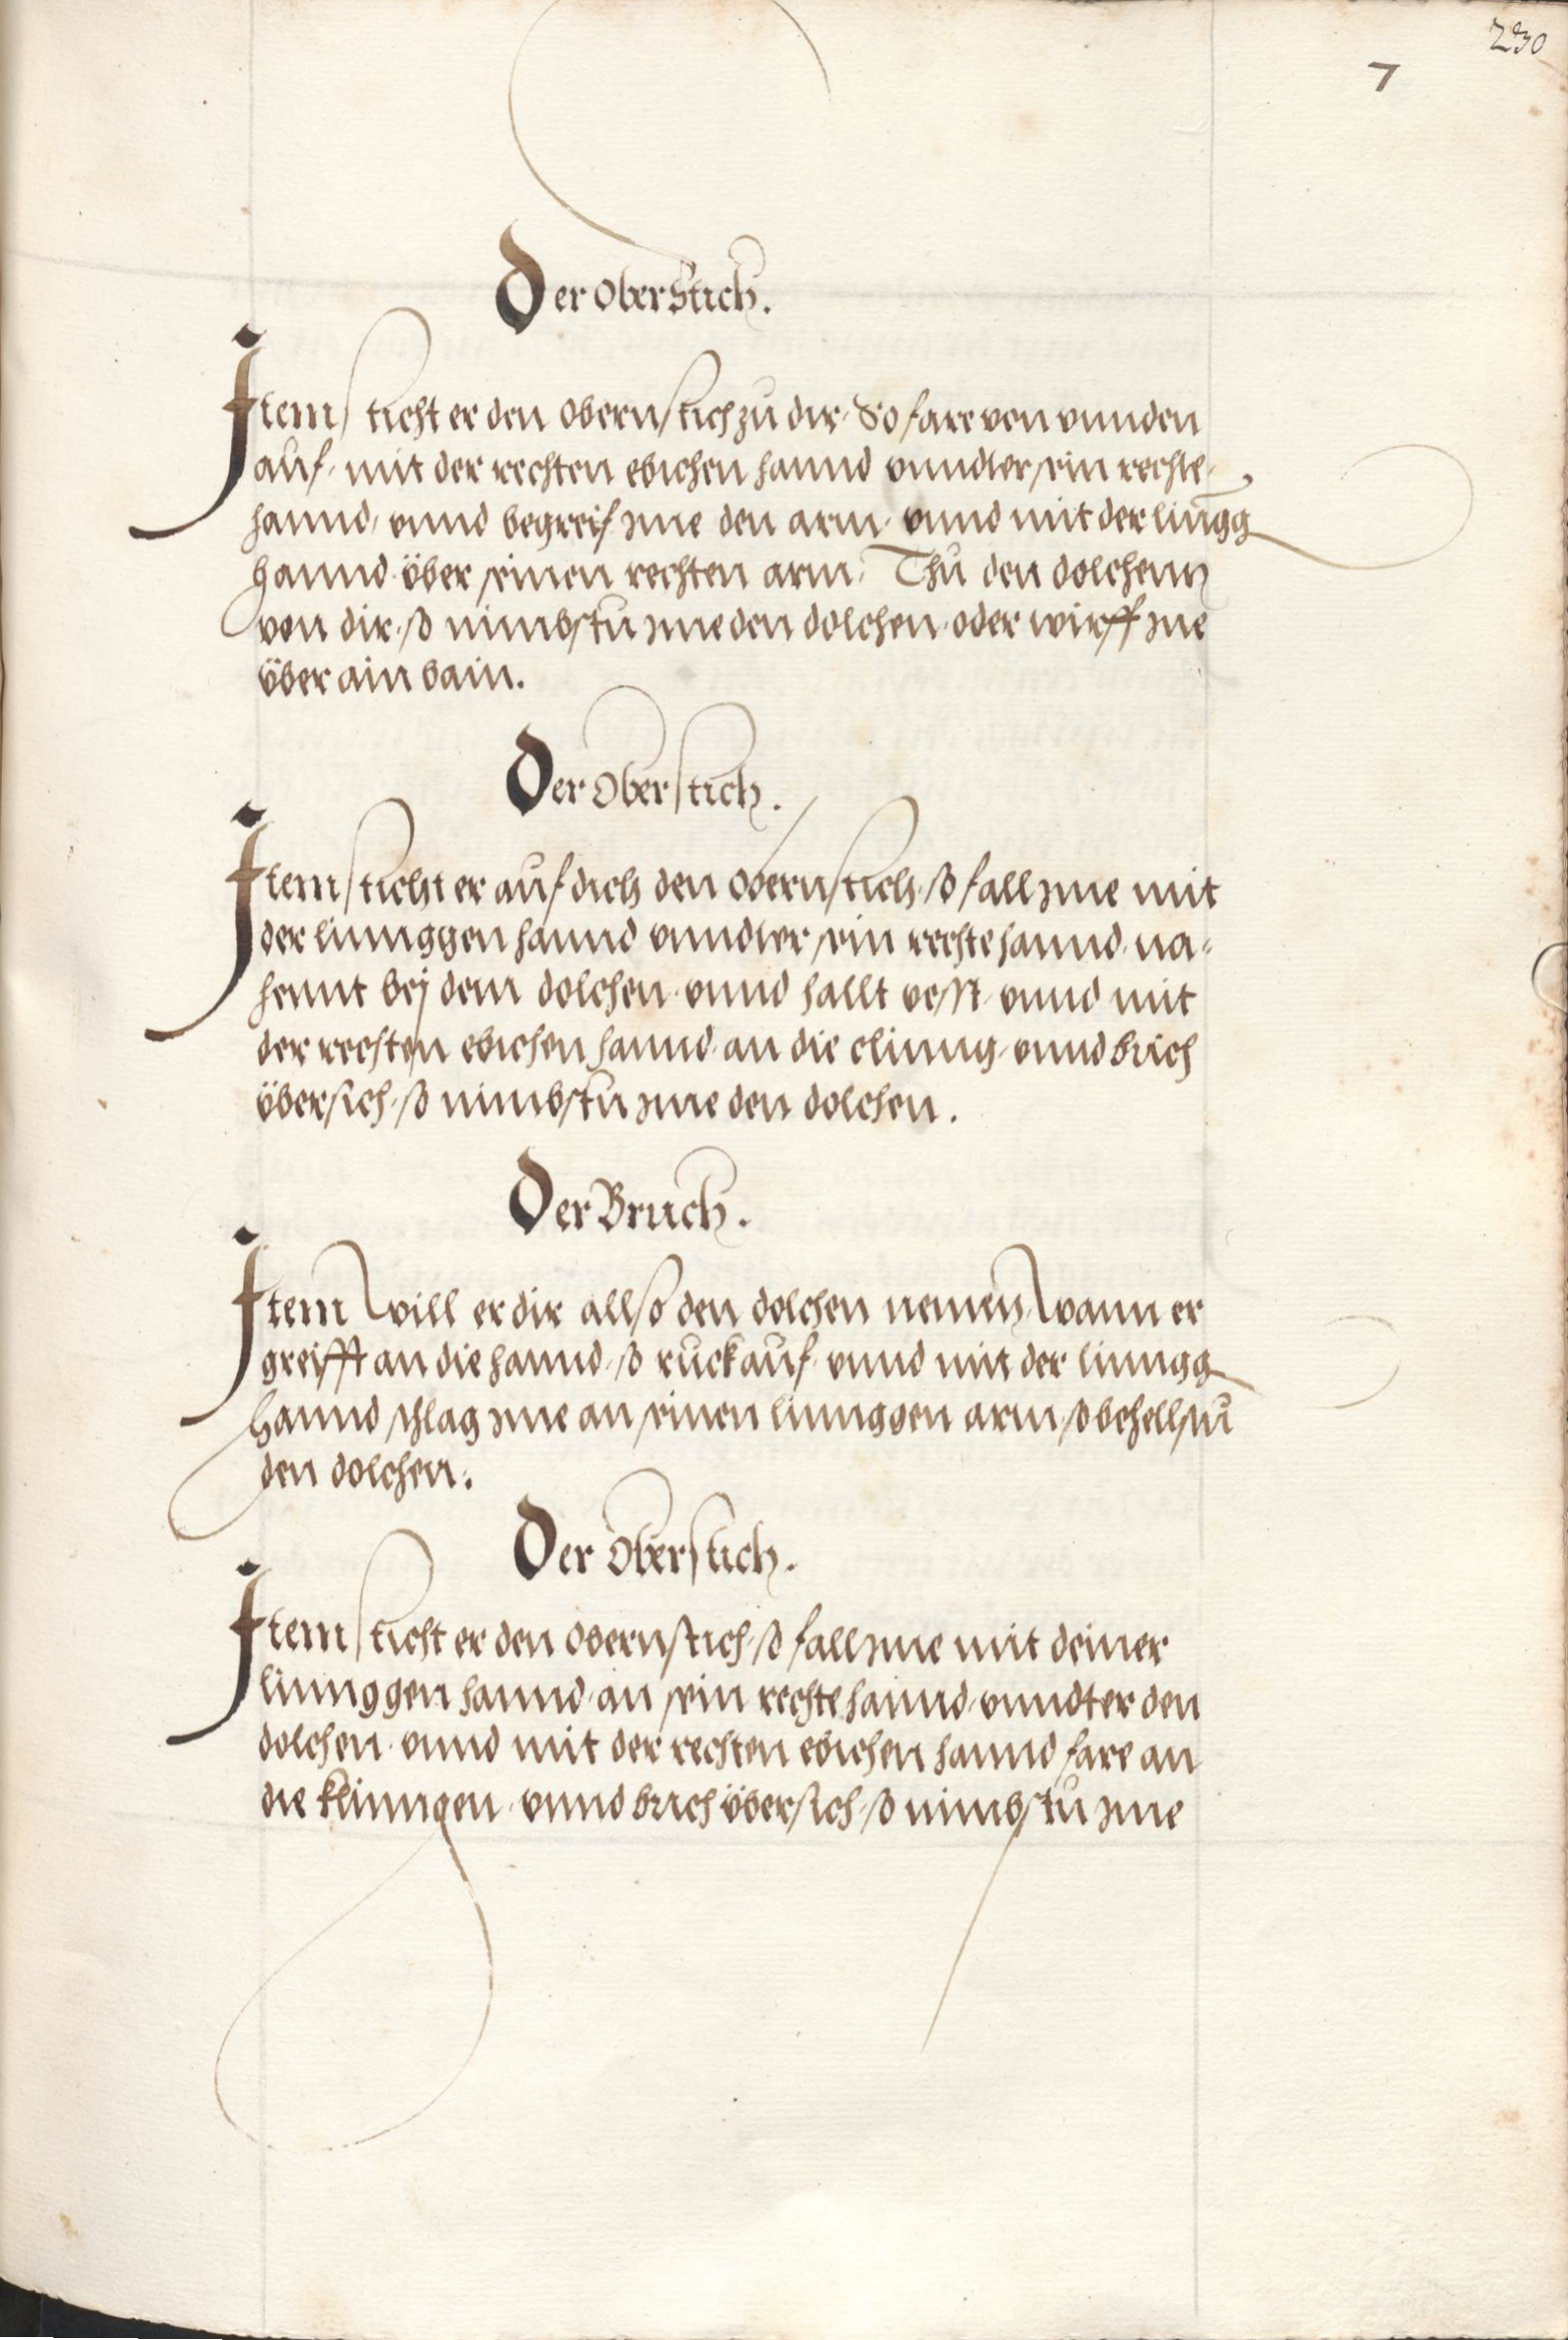 230
7
Der Oberstich.
Item sticht er den Obern stich zu dir, So fare von unnden
auf, mit der rechten ebichen hannd vnndter sein rechte,
hannd, vnnd begreif Ime den arm, vnnd mit der lingg
hannd über seinen rechten arm, Thů den dolchenn
von dir, so nimbstu Ime den dolchen, oder wirff Ine
über ain bain.
Der Oberstich.
Item sticht er auf dich den Obern stich, so fall Ime mit
der linnggen hannd vnndter sein rechte hannd, na-
hennt bej dem dolchen, vnnd hallt vesst, vnnd mit
der rechten ebichen hannd, an die clinng, vnnd brich
übersich, so nimbstu Ime den dolchen.
Der Bruch.
Item will er dir allso den dolchen nemen, wann er
greifft an die hannd, so ruck auf, vnnd mit der linngg
hannd schlag Ime an seinen linnggen arm, so behellstu
den dolchen.
Der Oberstich.
Item sticht er den Obern stich, so fall Ime mit deiner
linnggen hannd, an sein rechte hannd, vnndter den
dolchen, vnnd mit der rechten ebichen hannd fare an
die klinngen, vnnd brich übersich, so nimbstu Ime